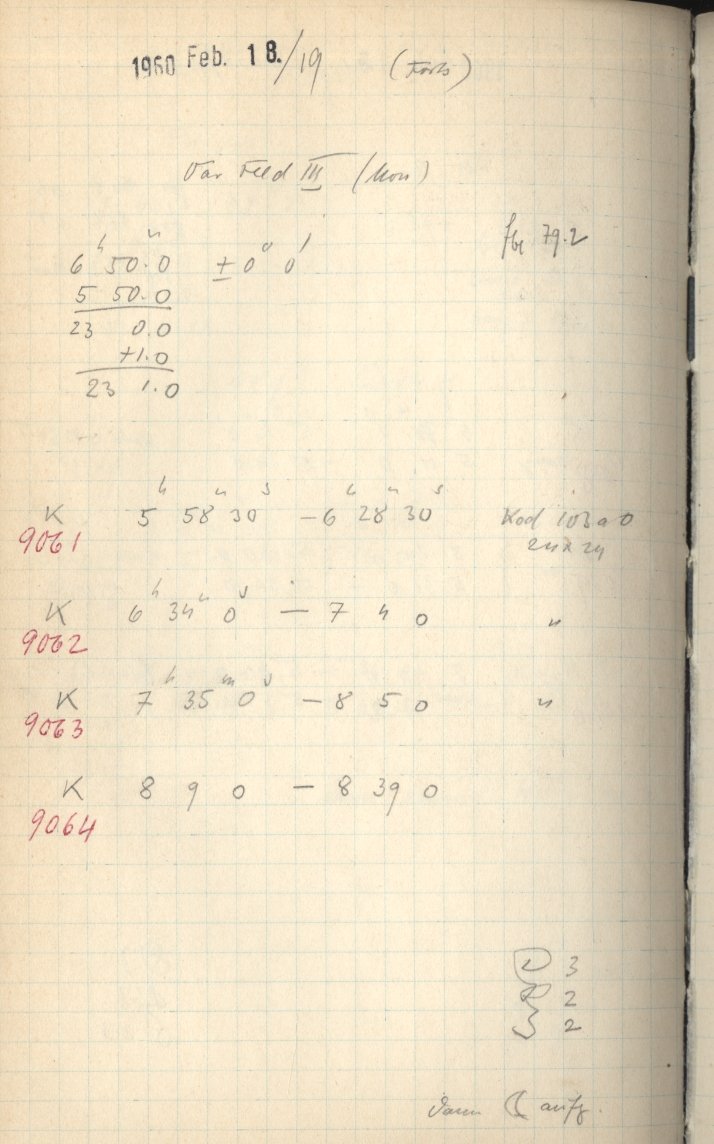 1960 Feb. 18./19 (Forts)
Var Feld III (Mon)
6 h 50.0 m ± 0° 0'
5 50.0
23 0.0
+1.0
23 1.0
79.2
K 5 h 58 m 30 s — 6 h 28 m 30 s Kod 103 a 0
9061 24 x 24
K 6 h 34 m 0 s — 7 4 0 "
9062
K 7 h 35 m 0 s — 8 5 0 "
9063
K 8 9 0 — 8 39 0
9064
D 3
R 2
S 2
Dann ☾ aufg.